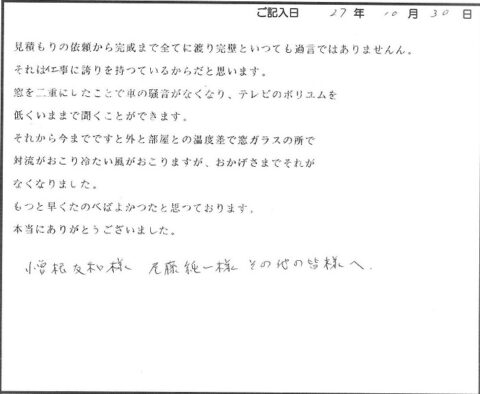 ご記入日 27年 10月 30日
見積もりの依頼から完成まで全てに渡り完璧といつても過言ではありませんん。
それは仕事に誇りを持つているからだと思います。
窓を二重にしたことで車の騒音がなくなり、テレビのボリユムを
低くいままで聞くことができます。
それから今までですと外と部屋との温度差で窓ガラスの所で
対流がおこり冷たい風がおこりますが、おかげさまでそれが
なくなりました。
もつと早くたのべばよかつたと思つております。
本当にありがとうございました。
小曽根友和様 尾藤純一様 その他の皆様へ.